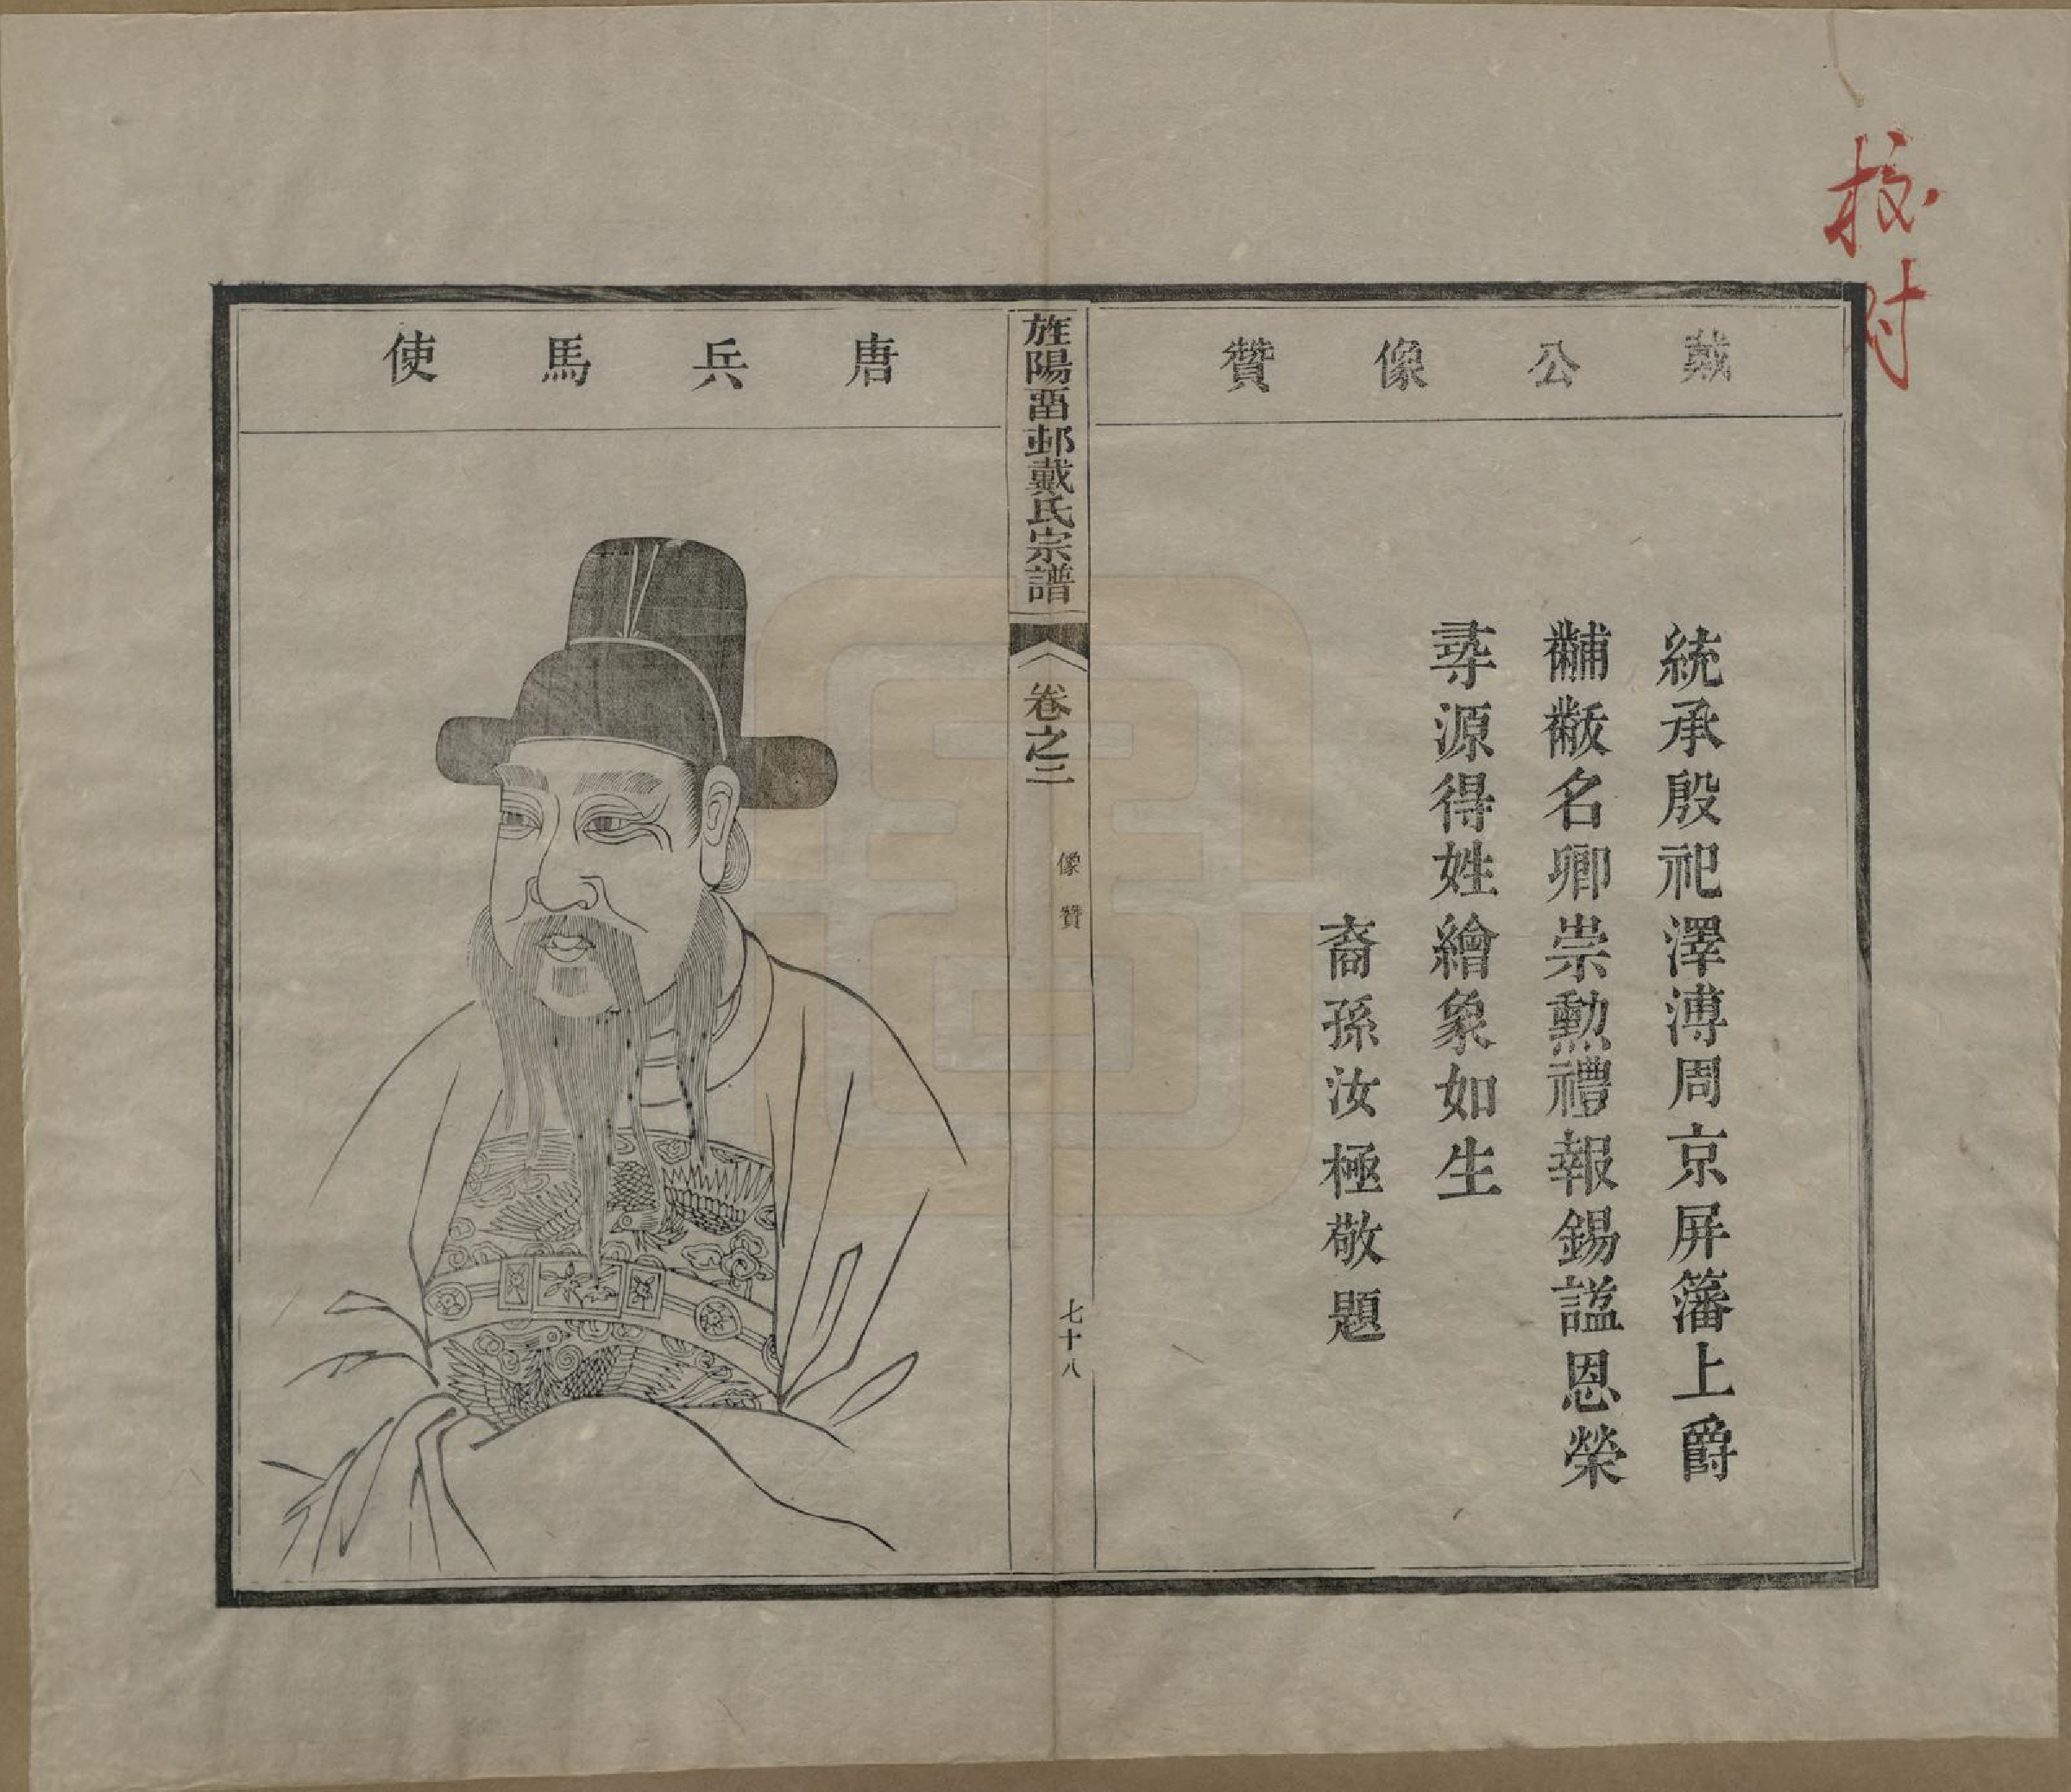 校對
戴公像贊
統承殷祀澤溥周京屏籓上爵
黼黻名卿崇勲禮報錫諡恩榮
尋源得姓繪象如生
裔孫汝極敬題
旌陽畱邨戴氏宗譜
卷之二
像贊
七十八
唐兵馬使